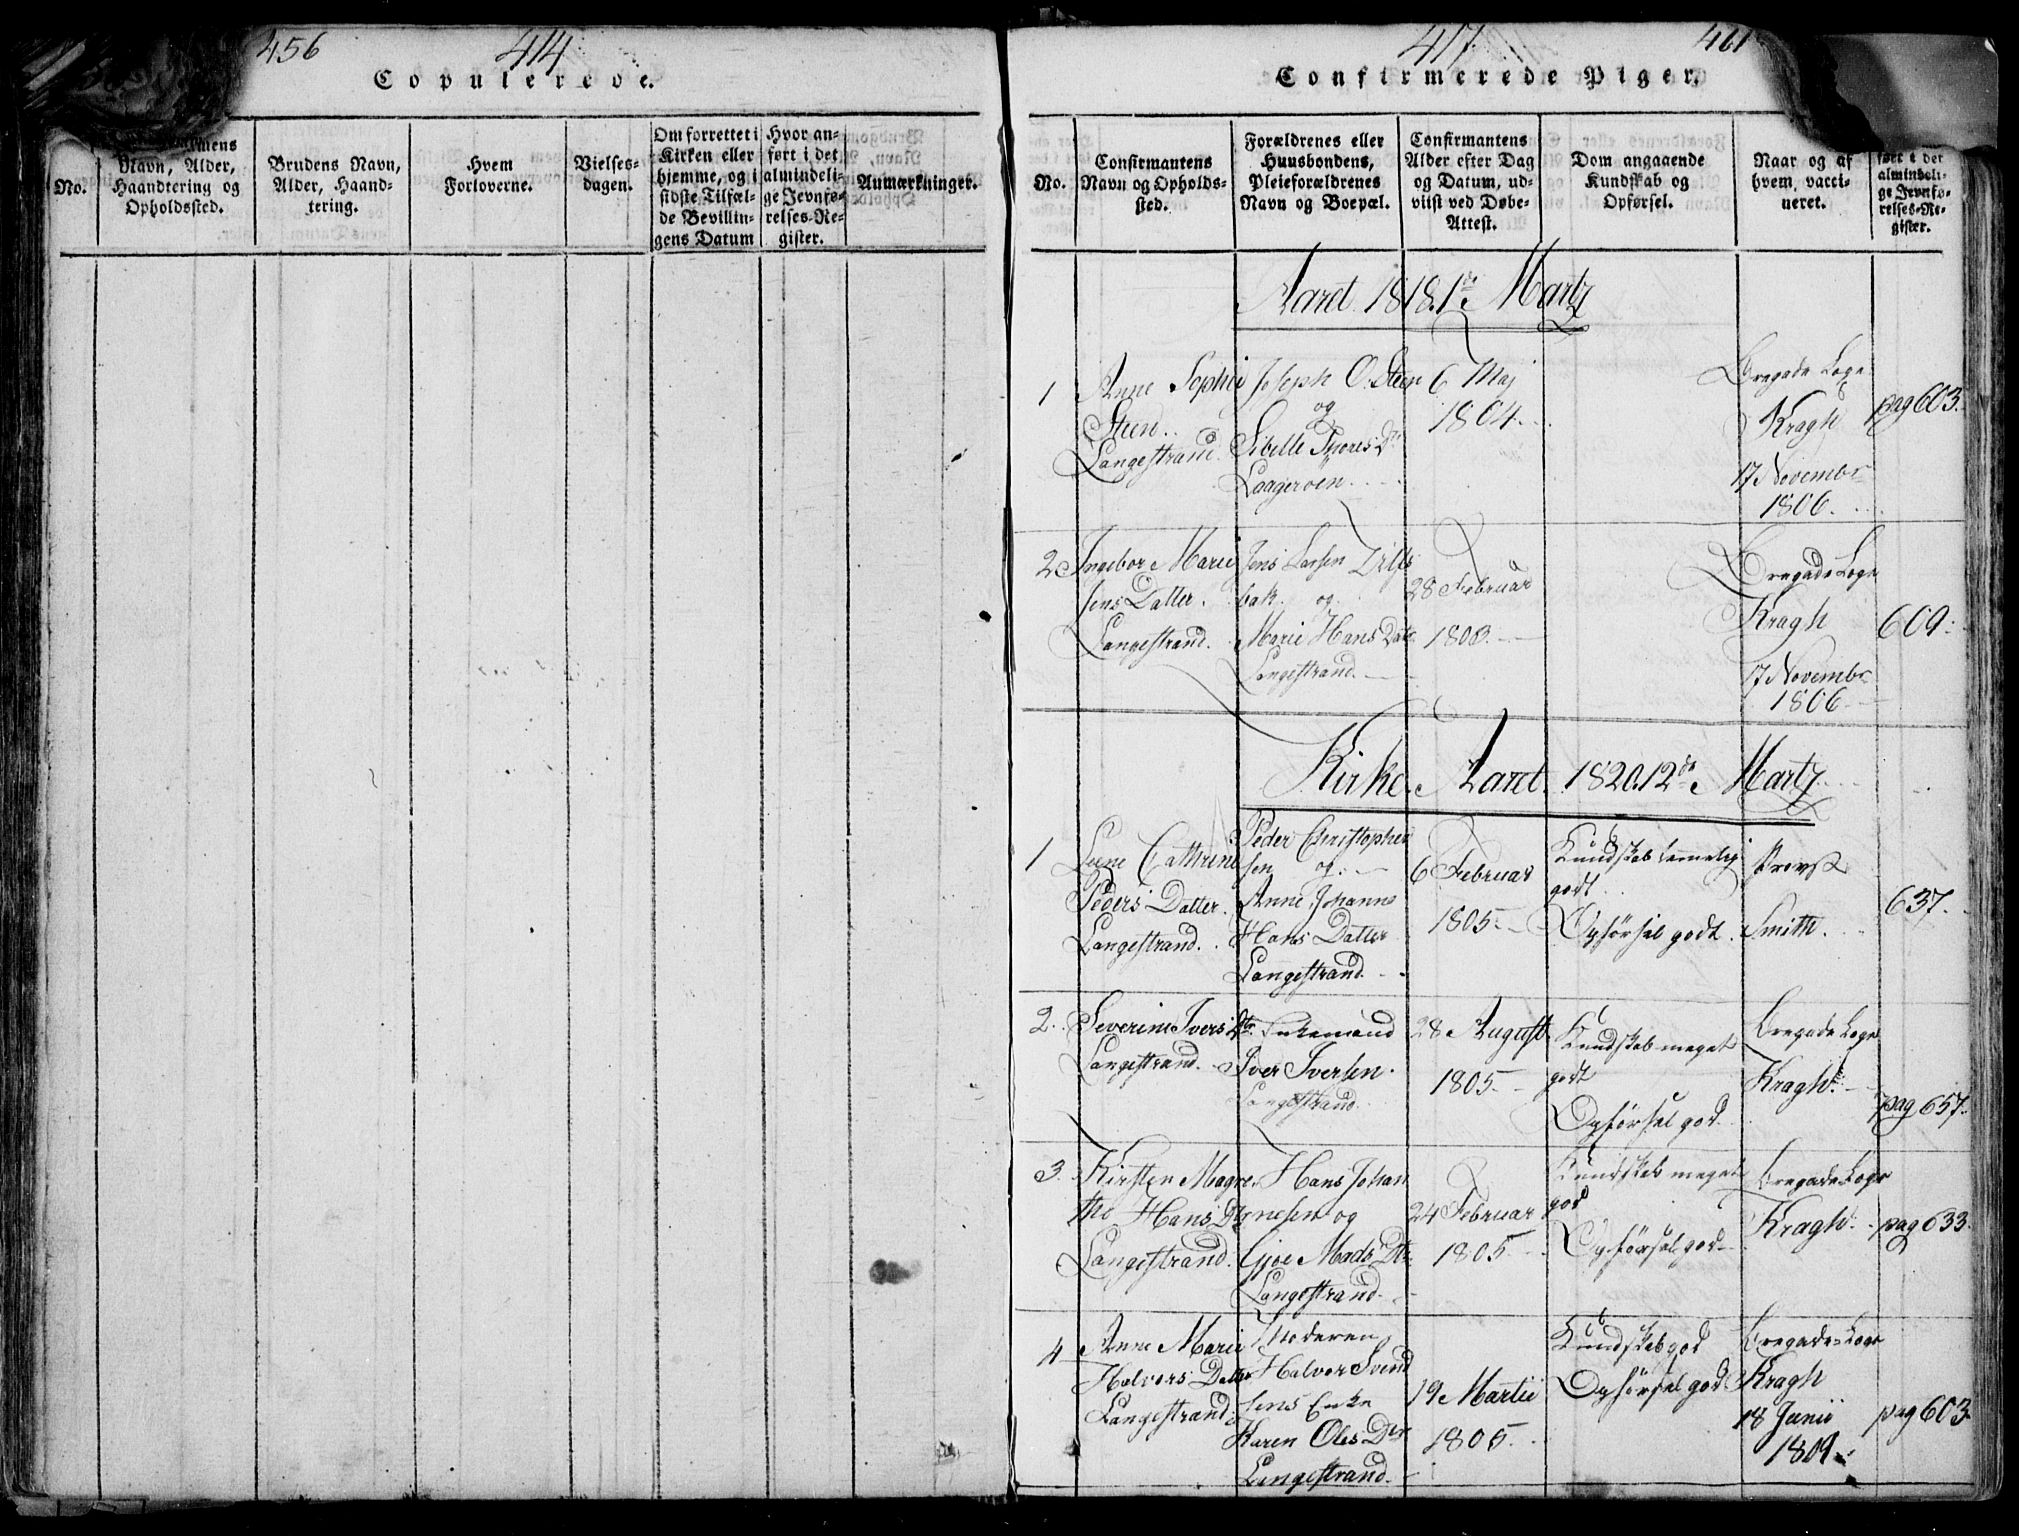 456
414
Copulerede.
No.
Navn, Alder,
Haandtering og
Opholdssted.
Brudens Navn,
Alder, Haand-
tering.
Hvem
Forloverne.
Vielses-
dagen.
Om forrettet i
Kirken eller
hjemme, og i
sidste Tilfæl-
de Bevillin-
gens Datum
Hvor an-
ført i det
almindeli-
ge Jevnfø-
relses-Re-
gister.
Anmærkninger.
417
461
Confirmerede Piger.
No.
Confirmantens
Navn og Opholds-
sted.
Forældrenes eller
Huusbondens,
Pleieforældrenes
Navn og Boepæl.
Confirmantens
Alder efter Dag
og Datum, ud-
viist ved Døbe-
Attest.
Dom angaaende
Kundskab og
Opførsel.
Naar og af
hvem vacci-
neret.
ført i det
almindeli-
ge Jevnfø-
relses-Re-
gister.
Aaret 1818. 1de Martz
1
Anne Sophie
Steen.
Langestrand.
Joseph O. Steen
og
Sibelle Thores Dr
Laageroen.
6 Maj
1804.
Bregade Loge
Kragh
17 Novembr
1806.
pag 603.
2
Ingebor Marie
Jens Datter.
Langestrand.
Jens Larsen
bak. og
Marie Hans Datr
Langestrand.
28 Februar
1803.
Bregade Loge
Kragh
17 Novembr
1806
609.
Kirke Aaret 1820. 12de Martz
1
Lene Cathrine
Peders Datter.
Langestrand.
Peder Christopher
sen og
Anne Johanne
Hans Datter
Langestrand.
6 Februar
1805.
Kundskab temelig
godt.
Opførsel godt.
Provst
Smith.
637.
2.
Severine Ivers Dtr
Langestrand.
Enkemand
Iver Iversen.
Langestrand.
28 August
1805.
Kundskab meget
godt
Opførsel god
Bregade Loge
Kragh.
pag 657.
3.
Kirsten Magre
the Hans Dtr
Langestrand.
Hans Johan
nesen og
Gjoe Mads Dtr
Langestrand.
24 Februar
1805.
Kundskab meget
god
Opførsel god
Bregade Loge
Kragh.
pag 633.
4
Anne Marie
Halvors Datter
Langestrand.
Moderen
Halvor Svend
sens Enke
Karen Oles Dtr
Langestrand.
19 Martii
1805.
Kundskab god
Opførsel god
Bregade-Loge
Kragh
18 Junii
1809.
pag 603.